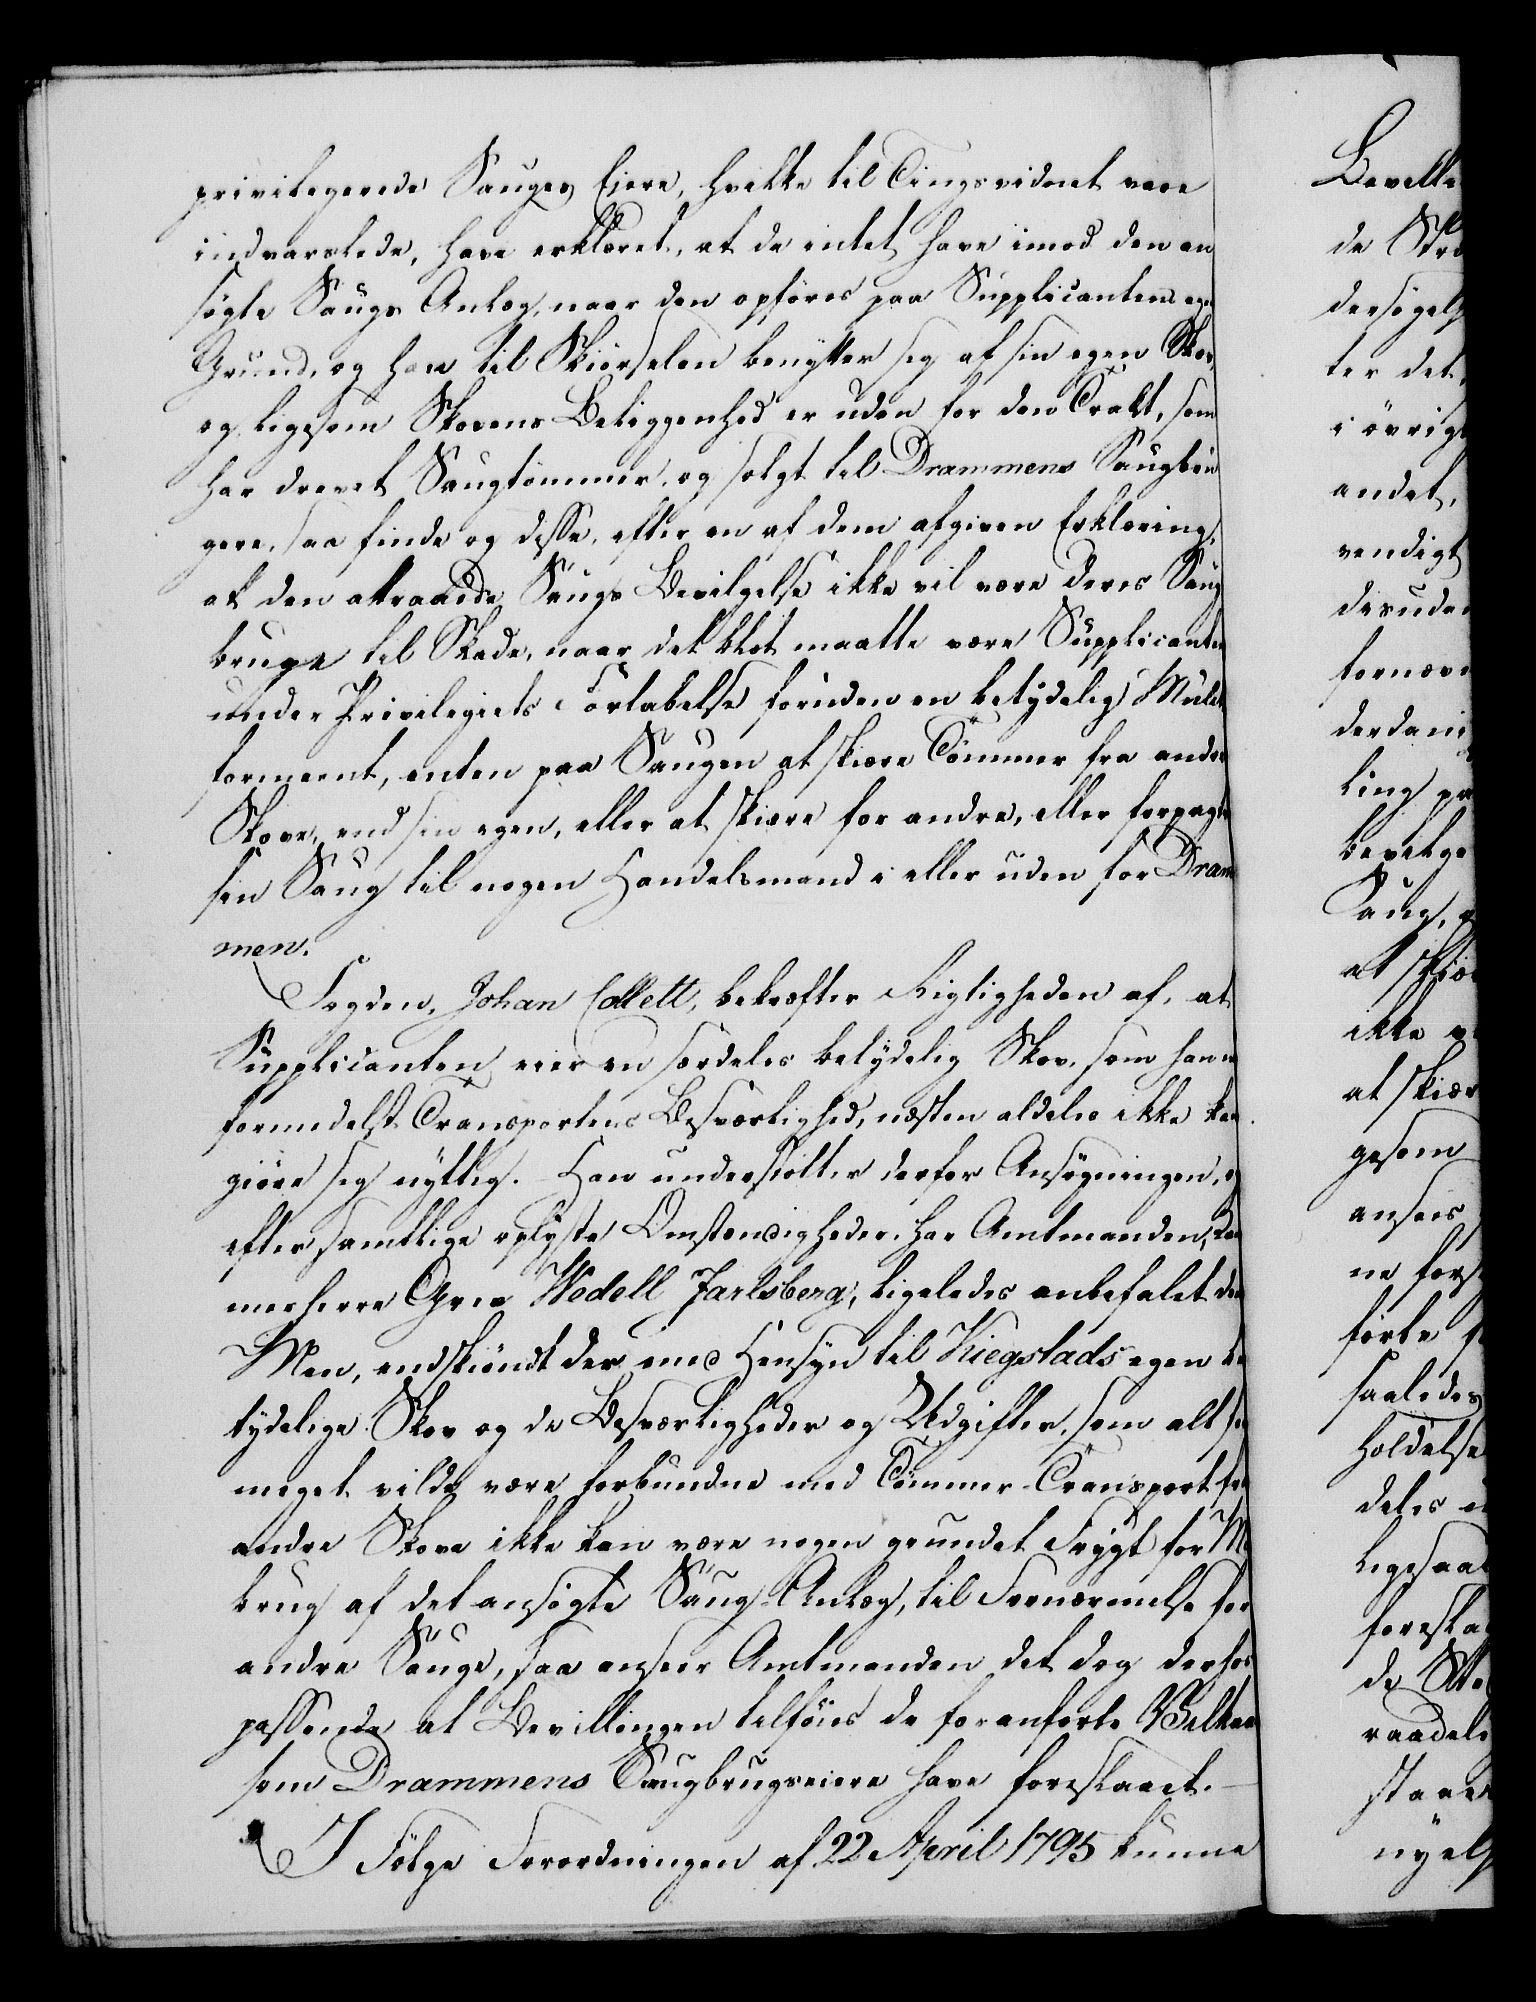 privilegerede Sauges Eiere, hvilke til Tingsvidnet vare
indvarslede, have erklæret, at de intet have imod den an
søgte Saugs Anlæg, naar den opføres paa Supplicantens egen
Grund, og han til Skiørselen benytter sig af sin egen Skov,
og ligesom Skovens Beliggenhed er uden for den Trakt, som
har drevet Saugtømmer, og solgt til Drammens Saugbru
gere, saa finde og disse, efter en af dem afgiven Erklæring,
at den attraaede Saugs Bevilgelse ikke vil være deres Saug
bruge til Skade, naar det blot maatte være Supplicanten
under Privilegiets Fortabelse foruden en betydelig Mulct
formeent, enten paa Saugen at skiære Tømmer fra andre
Skove, end sin egen, eller at skiære for andre, eller forpagte
sin Saug til nogen Handelsmand i eller uden for Dram
men.
Fogden, Johan Collett, bekræfter Rigtigheden af, at
Supplicanten eier en særdeles betydelig Skov, som han
formedelst Transportens Besværlighed, næsten aldeles ikke kan
giøre sig nyttig. Han understøtter derfor Ansøgningen, og
efter samtlige oplyste Omstændigheder har Amtmanden, Kam
merherre Greve Wedell Jarlsberg, ligeledes anbefalet den
Men, endskiøndt der med Hensyn til Kiegstads egen be
tydelige Skov og de Besværligheder og Udgifter, som alt for
meget vilde være forbundne med Tømmer-Transport fra
andre Skove ikke kan være nogen grundet Frygt for Mis
brug af det ansøgte Saug-Anlæg, til Fornærmelse for
andre Sauge, saa anseer Amtmanden det dog derhos
passende at Bevillingen tilføies de foranførte Vilkaar
som Drammens Saugbrugseiere have foreslaaet.
I Følge Forordningen af 22 April 1795 kunne
Bevilli
de St
dersøgels
ter det,
i øvrigt
andet,
vendigt
desuden
fornærm
derdani
ling pa
bevilge
Saug,
at skiær
ikke
at skiær
gesom
ansees
ne fors
førte
saaledes
holdelse
deles
ligesaa
foresla
de
raadel
staae
nyels